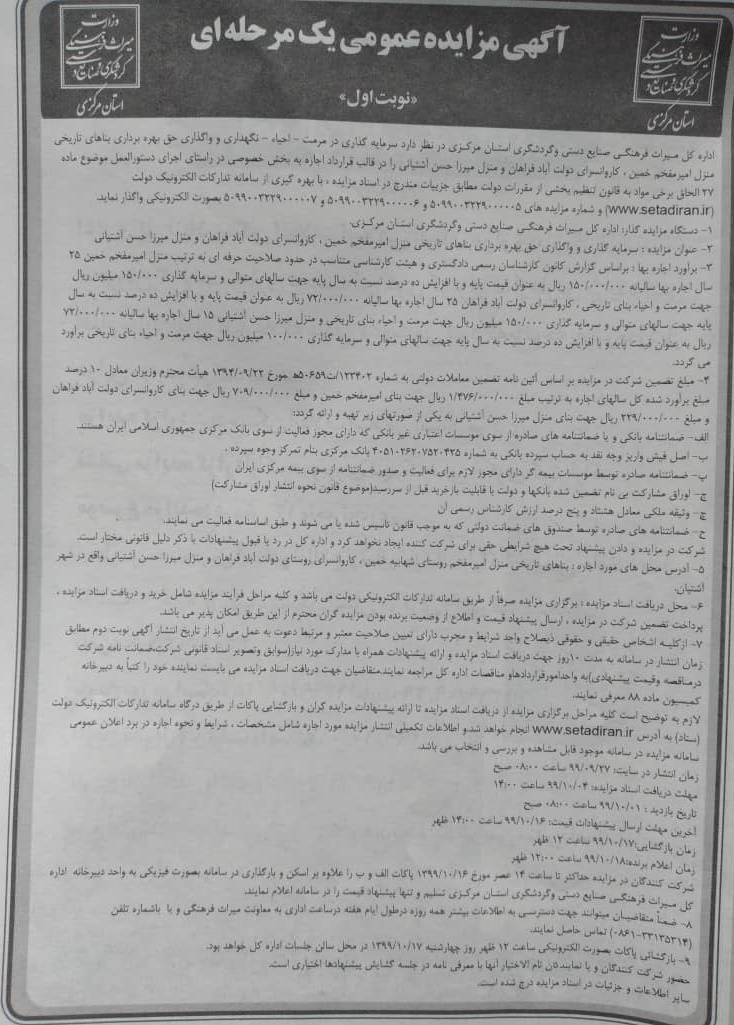 آگهی مزایده عمومی یک مرحله ای
«نوبت اول»
وزارت میراث فرهنگی گردشگری و صنایع دستی
استان مرکزی
وزارت میراث فرهنگی گردشگری و صنایع دستی
استان مرکزی
اداره کل میراث فرهنگی صنایع دستی وگردشگری استان مرکزی در نظر دارد سرمایه گذاری در مرمت - احیاء - نگهداری و واگذاری حق بهره برداری بناهای تاریخی
منزل امیرمفخم خمین ، کاروانسرای دولت آباد فراهان و منزل میرزا حسن آشتیانی را در قالب قرارداد اجاره به بخش خصوصی در راستای اجرای دستورالعمل موضوع ماده
۲۷ الحاق برخی مواد به قانون تنظیم بخشی از مقررات دولت مطابق جزییات مندرج در اسناد مزایده ، با بهره گیری از سامانه تدارکات الکترونیک دولت
(www.setadiran.ir) و شماره مزایده های ۵۰۹۹۰۰۳۲۲۹۰۰۰۰۰۵ و ۵۰۹۹۰۰۳۲۲۹۰۰۰۰۰۶ و ۵۰۹۹۰۰۳۲۲۹۰۰۰۰۰۷ بصورت الکترونیکی واگذار نماید.
۱- دستگاه مزایده گذار: اداره کل میراث فرهنگی صنایع دستی وگردشگری استان مرکزی.
۲- عنوان مزایده : سرمایه گذاری و واگذاری حق بهره برداری بناهای تاریخی منزل امیرمفخم خمین ، کاروانسرای دولت آباد فراهان و منزل میرزا حسن آشتیانی
۳- برآورد اجاره بها : براساس گزارش کانون کارشناسان رسمی دادگستری و هیئت کارشناسی متناسب در حدود صلاحیت حرفه ای به ترتیب منزل امیرمفخم خمین ۲۵
سال اجاره بها سالیانه ۱۵۰/۰۰۰/۰۰۰ ریال به عنوان قیمت پایه و با افزایش ده درصد نسبت به سال پایه جهت سالهای متوالی و سرمایه گذاری ۱۵۰/۰۰۰ میلیون ریال
جهت مرمت و احیاء بنای تاریخی ، کاروانسرای دولت آباد فراهان ۲۵ سال اجاره بها سالیانه ۷۲/۰۰۰/۰۰۰ ریال به عنوان قیمت پایه و با افزایش ده درصد نسبت به سال
پایه جهت سالهای متوالی و سرمایه گذاری ۱۵۰/۰۰۰ میلیون ریال جهت مرمت و احیاء بنای تاریخی و منزل میرزا حسن آشتیانی ۱۵ سال اجاره بها سالیانه ۷۲/۰۰۰/۰۰۰
ریال به عنوان قیمت پایه و با افزایش ده درصد نسبت به سال پایه جهت سالهای متوالی و سرمایه گذاری ۱۰۰/۰۰۰ میلیون ریال جهت مرمت و احیاء بنای تاریخی برآورد
می گردد.
۴- مبلغ تضمین شرکت در مزایده بر اساس آئین نامه تضمین معاملات دولتی به شماره ۱۲۳۴۰۲/ت۵۰۶۵۹هـ مورخ ۱۳۹۴/۰۹/۲۲ هیأت محترم وزیران معادل ۱۰ درصد
مبلغ برآورد شده کل سالهای اجاره به ترتیب مبلغ ۱/۴۷۶/۰۰۰/۰۰۰ ریال جهت بنای امیرمفخم خمین و مبلغ ۷۰۹/۰۰۰/۰۰۰ ریال جهت بنای کاروانسرای دولت آباد فراهان
و مبلغ ۲۲۹/۰۰۰/۰۰۰ ریال جهت بنای منزل میرزا حسن آشتیانی به یکی از صورتهای زیر تهیه و ارائه گردد:
الف- ضمانتنامه بانکی و یا ضمانتنامه های صادره از سوی موسسات اعتباری غیر بانکی که دارای مجوز فعالیت از سوی بانک مرکزی جمهوری اسلامی ایران هستند.
ب- اصل فیش واریز وجه نقد به حساب سپرده بانکی به شماره ۴۰۵۱۰۲۶۲۰۷۵۲۰۴۲۵ بانک مرکزی بنام تمرکز وجوه سپرده .
پ- ضمانتنامه صادره توسط موسسات بیمه گر دارای مجوز لازم برای فعالیت و صدور ضمانتنامه از سوی بیمه مرکزی ایران
ج- اوراق مشارکت بی نام تضمین شده بانکها و دولت با قابلیت بازخرید قبل از سررسید(موضوع قانون نحوه انتشار اوراق مشارکت)
چ- وثیقه ملکی معادل هشتاد و پنج درصد ارزش کارشناس رسمی آن
ح- ضمانتنامه های صادره توسط صندوق های ضمانت دولتی که به موجب قانون تاسیس شده یا می شوند و طبق اساسنامه فعالیت می نمایند.
شرکت در مزایده و دادن پیشنهاد تحت هیچ شرایطی حقی برای شرکت کننده ایجاد نخواهد کرد و اداره کل در رد یا قبول پیشنهادات با ذکر دلیل قانونی مختار است.
۵- آدرس محل های مورد اجاره : بناهای تاریخی منزل امیرمفخم روستای شهابیه خمین ، کاروانسرای روستای دولت آباد فراهان و منزل میرزا حسن آشتیانی واقع در شهر
آشتیان.
۶- محل دریافت اسناد مزایده : برگزاری مزایده صرفاً از طریق سامانه تدارکات الکترونیکی دولت می باشد و کلیه مراحل فرآیند مزایده شامل خرید و دریافت اسناد مزایده ،
پرداخت تضمین شرکت در مزایده ، ارسال پیشنهاد قیمت و اطلاع از وضعیت برنده بودن مزایده گران محترم از این طریق امکان پذیر می باشد.
۷- ازکلیه اشخاص حقیقی و حقوقی ذیصلاح واجد شرایط و مجرب دارای تعیین صلاحیت معتبر و مرتبط دعوت به عمل می آید از تاریخ انتشار آگهی نوبت دوم مطابق
زمان انتشار در سامانه به مدت ۱۰روز جهت دریافت اسناد مزایده و ارائه پیشنهادات همراه با مدارک مورد نیاز(سوابق وتصویر اسناد قانونی شرکت،ضمانت نامه شرکت
درمناقصه وقیمت پیشنهادی)به واحدامورقراردادهاو مناقصات اداره کل مراجعه نمایند.متقاضیان جهت دریافت اسناد مزایده می بایست نماینده خود را کتباً به دبیرخانه
کمیسیون ماده ۸۸ معرفی نمایند.
لازم به توضیح است کلیه مراحل برگزاری مزایده از دریافت اسناد مزایده تا ارائه پیشنهادات مزایده گران و بازگشایی پاکات از طریق درگاه سامانه تدارکات الکترونیک دولت
(ستاد) به آدرس www.setadiran.ir انجام خواهد شد.و اطلاعات تکمیلی انتشار مزایده مورد اجاره شامل مشخصات ، شرایط و نحوه اجاره در برد اعلان عمومی
سامانه مزایده در سامانه موجود قابل مشاهده و بررسی و انتخاب می باشد.
زمان انتشار در سایت: ۹۹/۰۹/۲۷ ساعت ۰۸:۰۰ صبح
مهلت دریافت اسناد مزایده: ۹۹/۱۰/۰۴ ساعت ۱۴:۰۰
تاریخ بازدید : ۹۹/۱۰/۰۱ ساعت ۰۸:۰۰ صبح
آخرین مهلت ارسال پیشنهادات قیمت: ۹۹/۱۰/۱۶ ساعت ۱۴:۰۰ ظهر
زمان بازگشایی:۹۹/۱۰/۱۷ ساعت ۱۲ ظهر
زمان اعلام برنده:۹۹/۱۰/۱۸ ساعت ۱۲:۰۰ ظهر
شرکت کنندگان در مزایده حداکثر تا ساعت ۱۴ عصر مورخ ۱۳۹۹/۱۰/۱۶ پاکات الف و ب را علاوه بر اسکن و بارگذاری در سامانه بصورت فیزیکی به واحد دبیرخانه اداره
کل میراث فرهنگی صنایع دستی وگردشگری استان مرکزی تسلیم و تنها پیشنهاد قیمت را در سامانه اعلام نمایند.
۸- ضمناً متقاضیان میتوانند جهت دسترسی به اطلاعات بیشتر همه روزه درطول ایام هفته درساعت اداری به معاونت میراث فرهنگی و یا باشماره تلفن
(۰۸۶۱-۳۳۱۳۵۳۱۴) تماس حاصل نمایند.
۹- بازگشائی پاکات بصورت الکترونیکی ساعت ۱۲ ظهر روز چهارشنبه ۱۳۹۹/۱۰/۱۷ در محل سالن جلسات اداره کل خواهد بود.
حضور شرکت کنندگان و یا نمایندگان تام الاختیار آنها با معرفی نامه در جلسه گشایش پیشنهادها اختیاری است.
سایر اطلاعات و جزئیات در اسناد مزایده درج شده است.